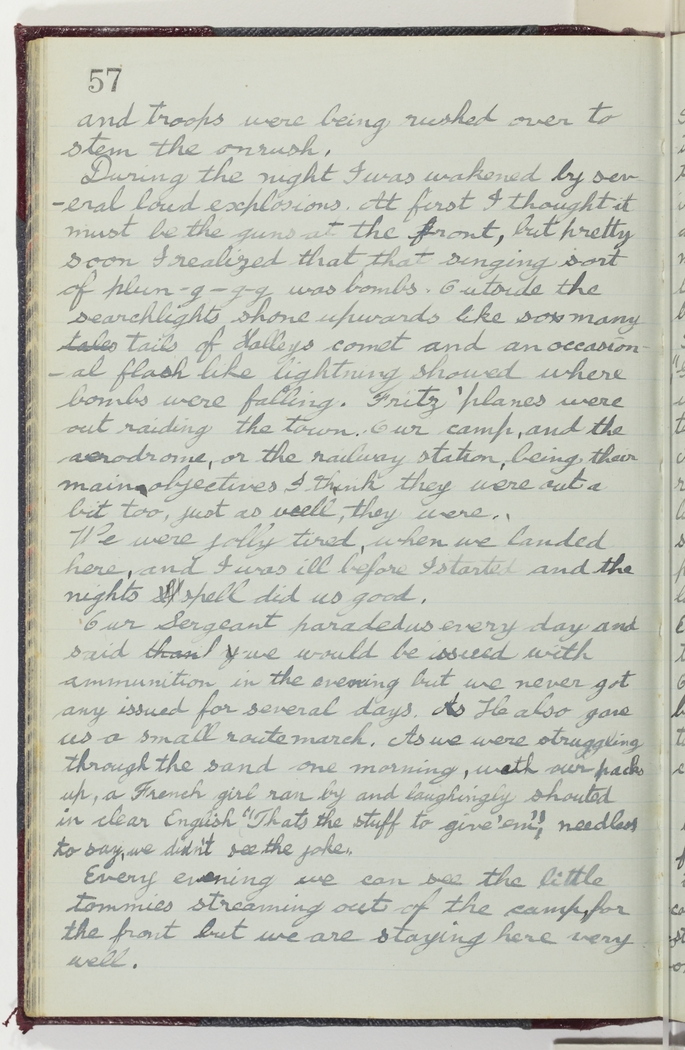 57
and troops were being rushed over to
stem the onrush.
During the night I was wakened by sev-
-eral loud explosions. At first I thought it
must be the guns at the front, but pretty
soon I realized that that singing sort
of plun-g-g-g was bombs. Outside the
searchlights shone upwards like so many
tales tails of Halleys comet and an occasion-
-al flash like lightning showed where
bombs were falling. Fritz 'planes were
out raiding the town. Our camp, and the
aerodrome, or the railway station, being their
main objectives I think they were out a
bit too, just as well, they were.
We were jolly tired, when we landed
here, and I was ill before I started and the
nights spell did us good.
Our Sergeant paraded us every day and
said that we would be issued with
ammunition in the evening but we never got
any issued for several days. As He also gave
us a small route march. As we were struggling
through the sand one morning, with our packs
up, a French girl ran by and laughingly shouted
in clear English "Thats the stuff to give 'em", needless
to say, we didn't see the joke.
Every evening we can see the little
tommies streaming out of the camp, for
the front but we are staying here very
well.